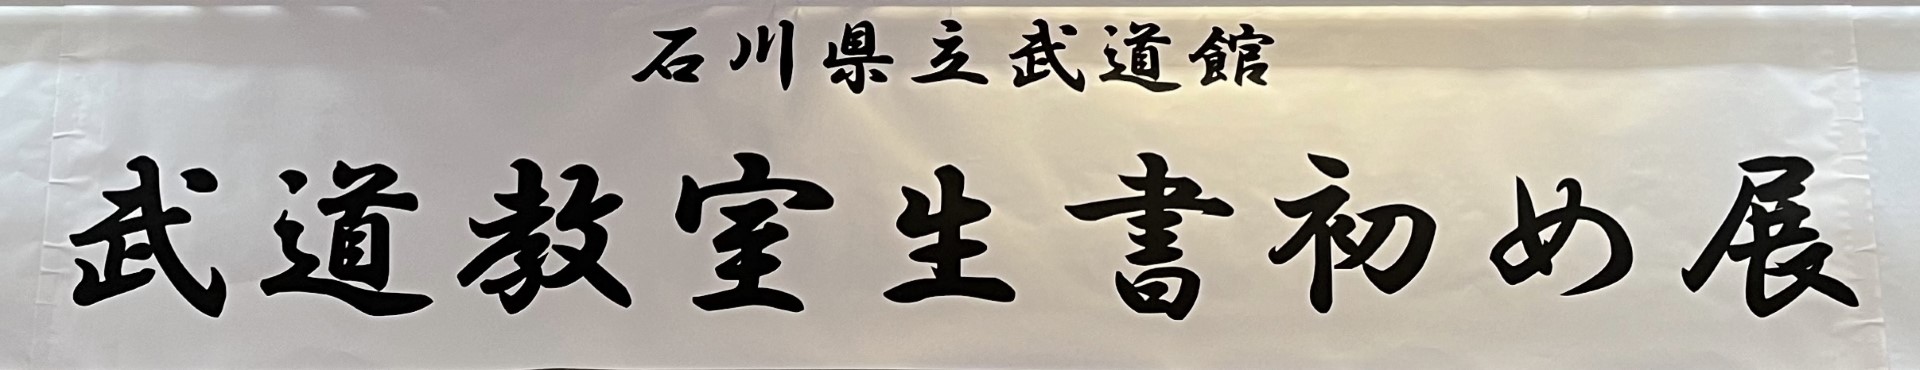 石川県立武道館
武道教室生書初め展